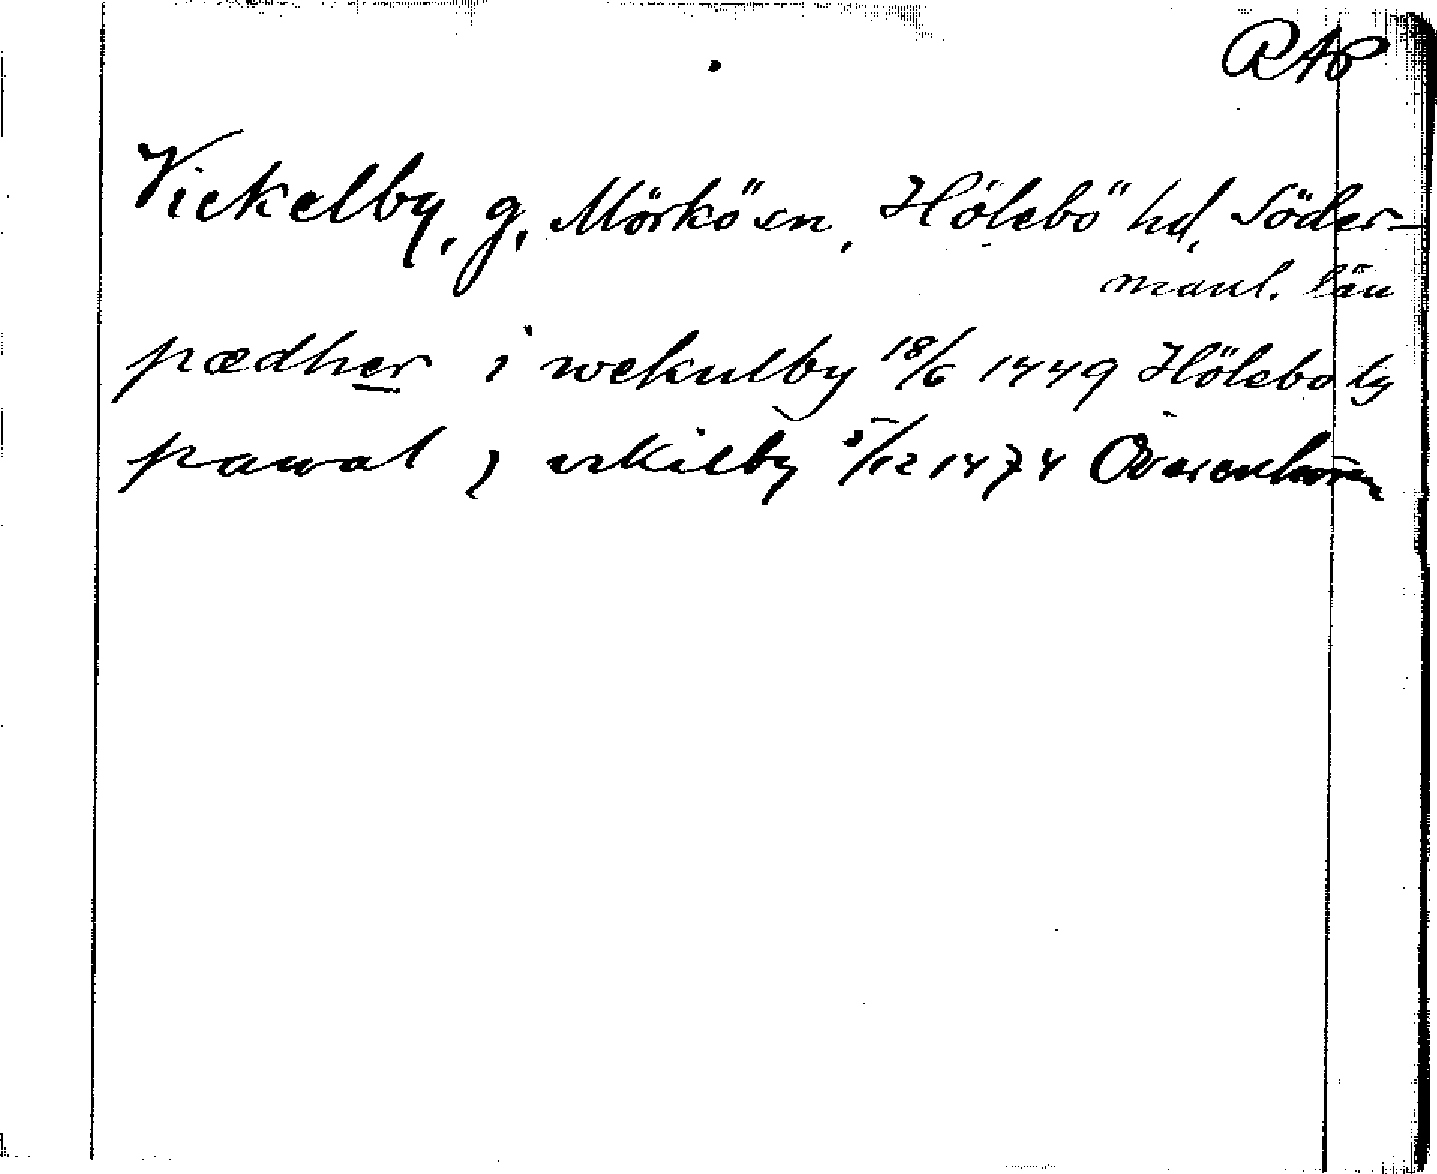 RAP
Vickelby, g, Mörkö sn, Hölebö hd, Söder-
manl. län
pædher i wekulby 18/6 1449 Hölebo tg
pawal j vikilby 5/12 1474